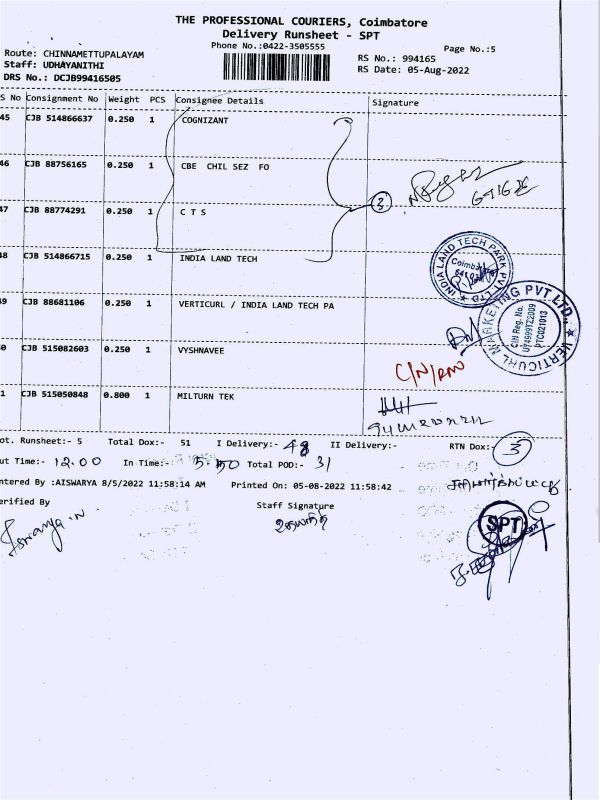 THE PROFESSIONAL COURIERS, Coimbatore
Delivery Runsheet - SPT
Phone No.:0422-3505555
Page No.:5
Route: CHINNAMETTUPALAYAM
RS No.: 994165
Staff: UDHAYANITHI
RS Date: 05-Aug-2022
DRS No.: DCJB99416505
S No Consignment No Weight PCS Consignee Details Signature
45 CJB 514866637 0.250 1 COGNIZANT
46 CJB 88756165 0.250 1 CBE CHIL SEZ FO
3
47 CJB 88774291 0.250 1 C T S
48 CJB 514866715 0.250 1 INDIA LAND TECH
INDIA LAND TECH PARK PVT LTD
49 CJB 88681106 0.250 1 VERTICURL / INDIA LAND TECH PA
VERTICURL MARKETING PVT.LTD.,
CIN Reg. No.
U74999TZ2009
PTC021013
0 CJB 515082603 0.250 1 VYSHNAVEE
C/N/RM
1 CJB 515050848 0.800 1 MILTURN TEK
ot. Runsheet:- 5 Total Dox:- 51 I Delivery:- 48 II Delivery:- RTN Dox:- 3
ut Time:- 12.00 In Time:- 5.30 Total POD:- 31
ntered By :AISWARYA 8/5/2022 11:58:14 AM Printed On: 05-08-2022 11:58:42
erified By Staff Signature
SPT